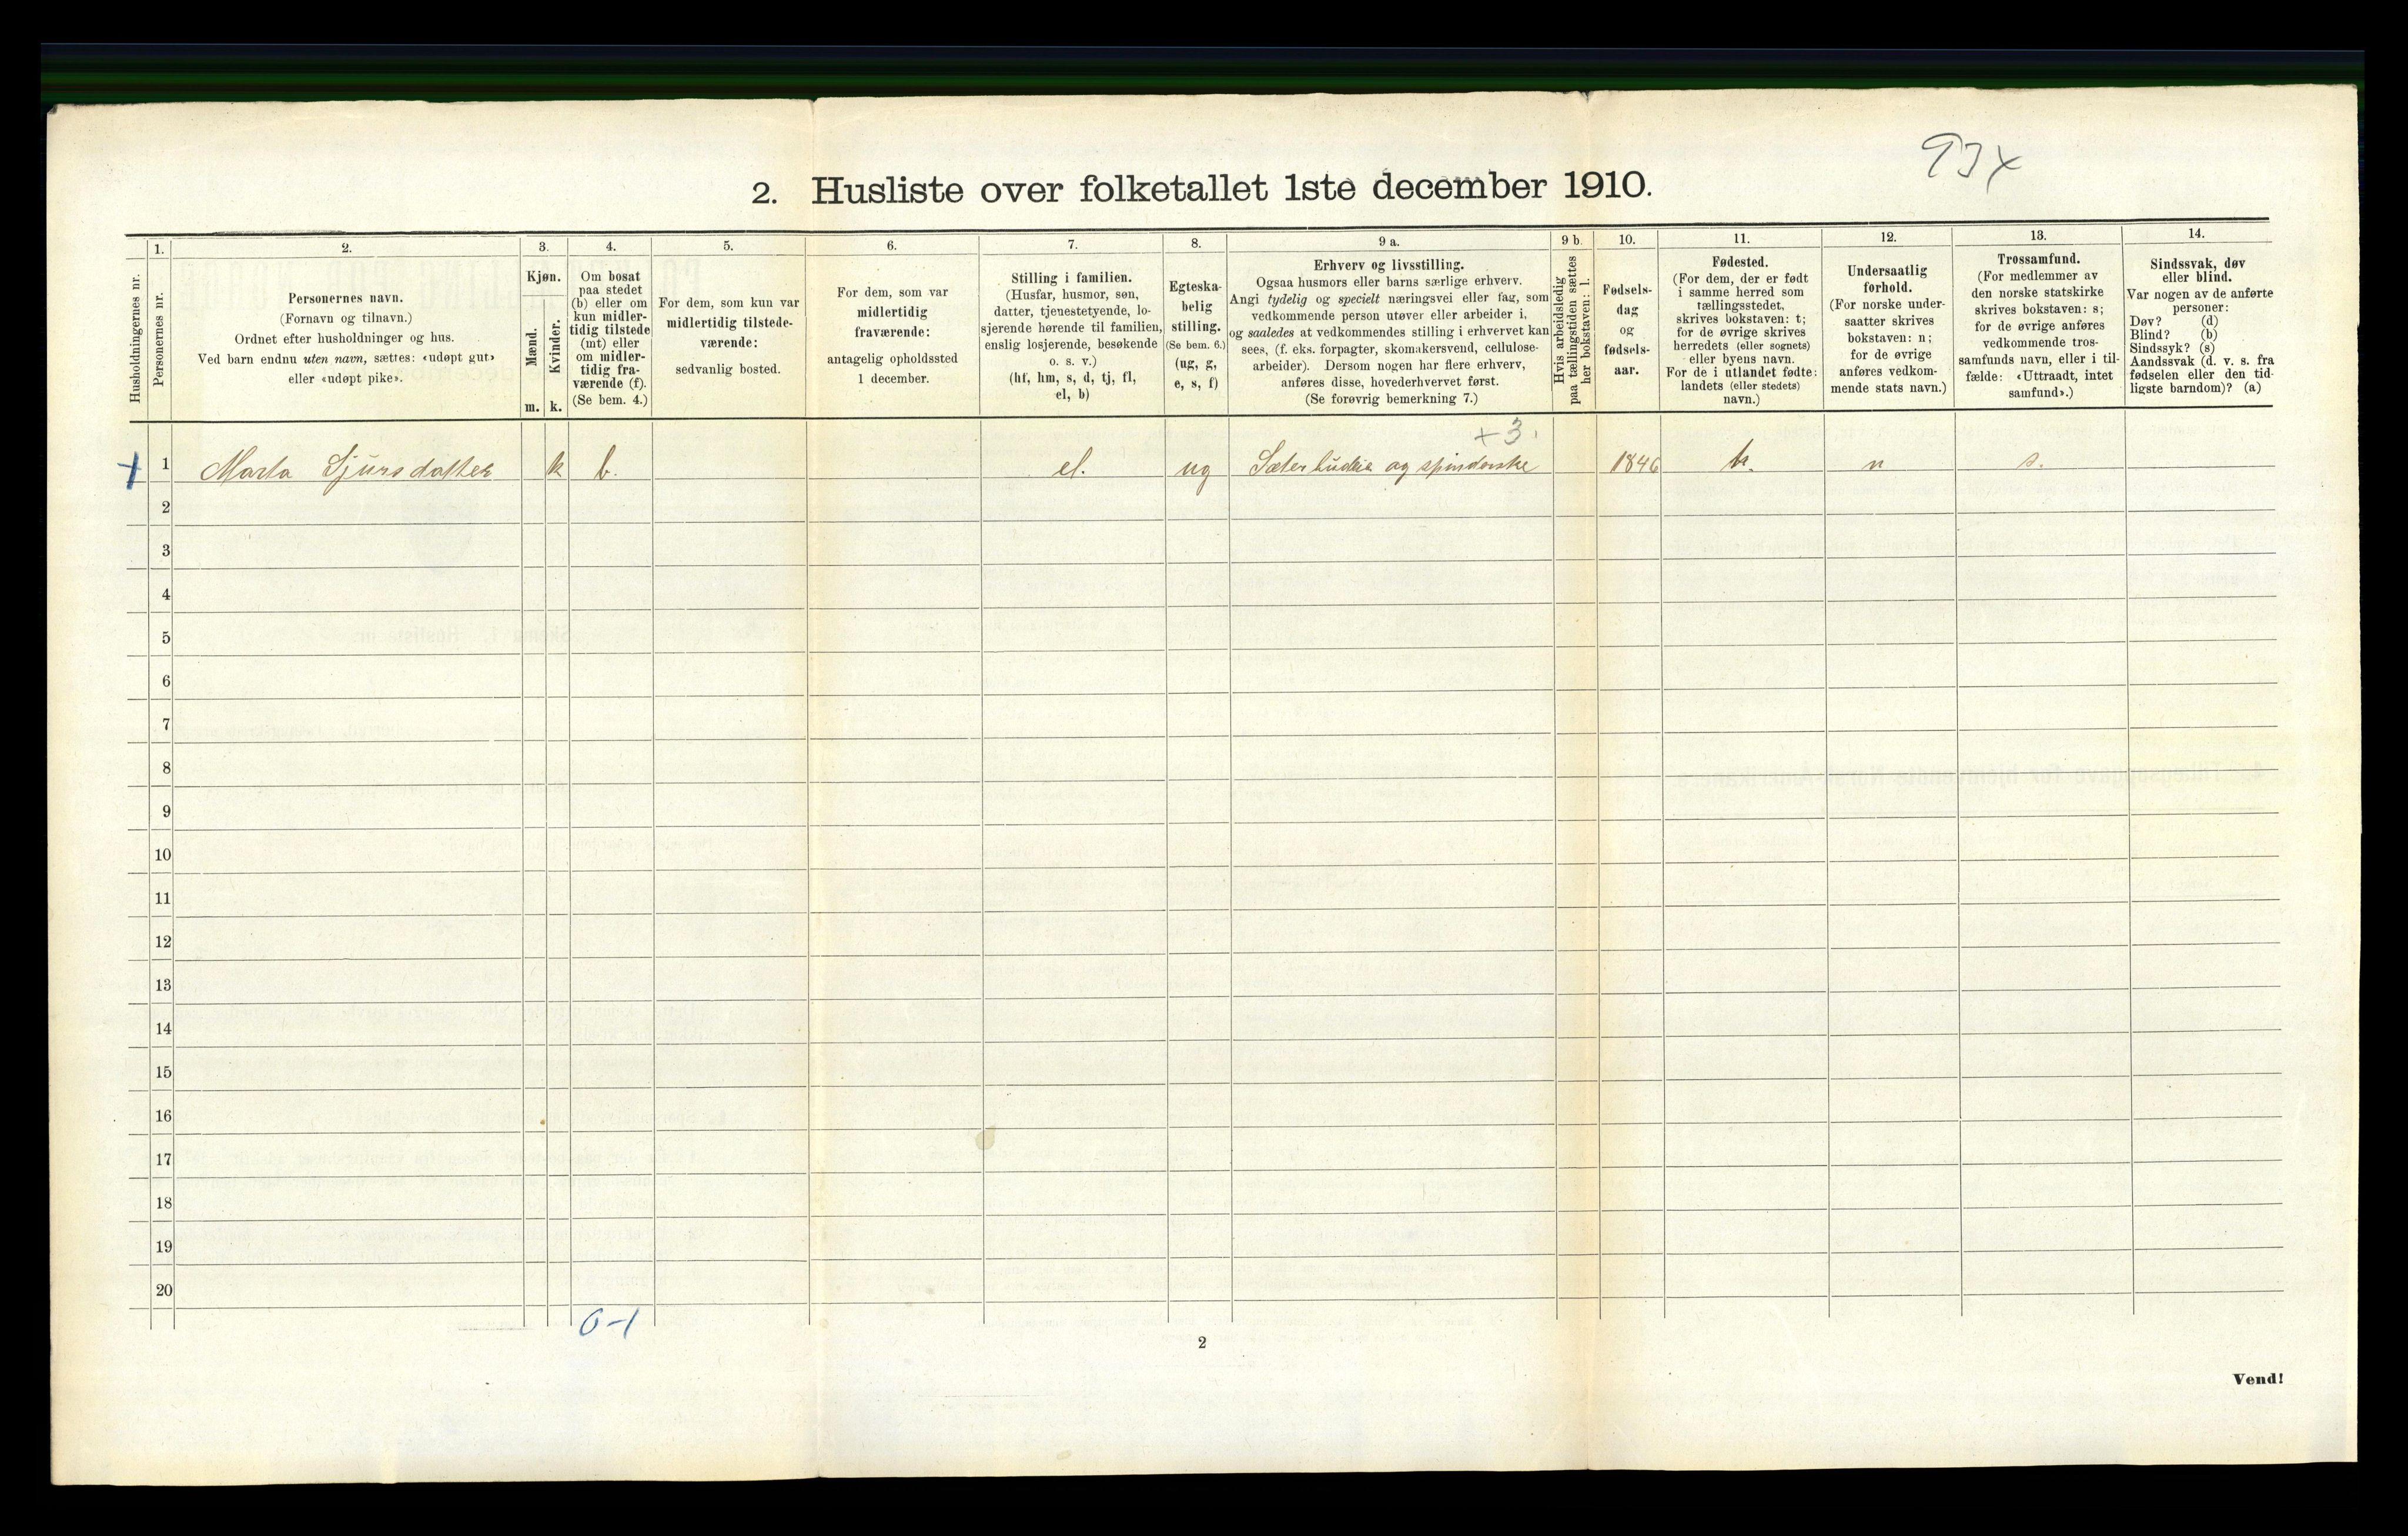 93x
2. Husliste over folketallet 1ste december 1910.
1.
2.
3.
4.
5.
6.
7.
8.
9 a.
9 b.
10.
11.
12.
13.
14.
Husholdningernes nr.
Personernes nr.
Personernes navn.
(Fornavn og tilnavn.)
Ordnet efter husholdninger og hus.
Ved barn endnu uten navn, sættes: «udøpt gut»
eller «udøpt pike».
Kjøn.
Mænd.
Kvinder.
m. k.
Om bosat
paa stedet
(b) eller om
kun midler-
tidig tilstede
(mt) eller
om midler-
tidig fra-
værende (f).
(Se bem. 4.)
For dem, som kun var
midlertidig tilstede-
værende:
sedvanlig bosted.
For dem, som var
midlertidig
fraværende:
antagelig opholdssted
1 december.
Stilling i familien.
(Husfar, husmor, søn,
datter, tjenestetyende, lo-
sjerende hørende til familien,
enslig losjerende, besøkende
o. s. v.)
(hf, hm, s, d, tj, fl,
el, b)
Egteska-
belig
stilling.
(Se bem. 6.)
(ug, g,
e, s, f)
Erhverv og livsstilling.
Ogsaa husmors eller barns særlige erhverv.
Angi tydelig og specielt næringsvei eller fag, som
vedkommende person utøver eller arbeider i,
og saaledes at vedkommendes stilling i erhvervet kan
sees, (f. eks. forpagter, skomakersvend, cellulose-
arbeider). Dersom nogen har flere erhverv,
anføres disse, hovederhvervet først.
(Se forøvrig bemerkning 7.)
Hvis arbeidsledig
paa tællingstiden sættes
her bokstaven: l.
Fødsels-
dag
og
fødsels-
aar.
Fødested.
(For dem, der er født
i samme herred som
tællingsstedet,
skrives bokstaven: t;
for de øvrige skrives
herredets (eller sognets)
eller byens navn.
For de i utlandet fødte:
landets (eller stedets)
navn.)
Undersaatlig
forhold.
(For norske under-
saatter skrives
bokstaven: n;
for de øvrige
anføres vedkom-
mende stats navn.)
Trossamfund.
(For medlemmer av
den norske statskirke
skrives bokstaven: s;
for de øvrige anføres
vedkommende tros-
samfunds navn, eller i til-
fælde: «Uttraadt, intet
samfund».)
Sindssvak, døv
eller blind.
Var nogen av de anførte
personer:
Døv? (d)
Blind? (b)
Sindssyk? (s)
Aandssvak (d. v. s. fra
fødselen eller den tid-
ligste barndom)? (a)
+3.
1 Marta Sjursdatter k b. el. ug og 1846 n s.
2
3
4
5
6
7
8
9
10
11
12
13
14
15
16
17
18
19
20
0-1
2
Vend!